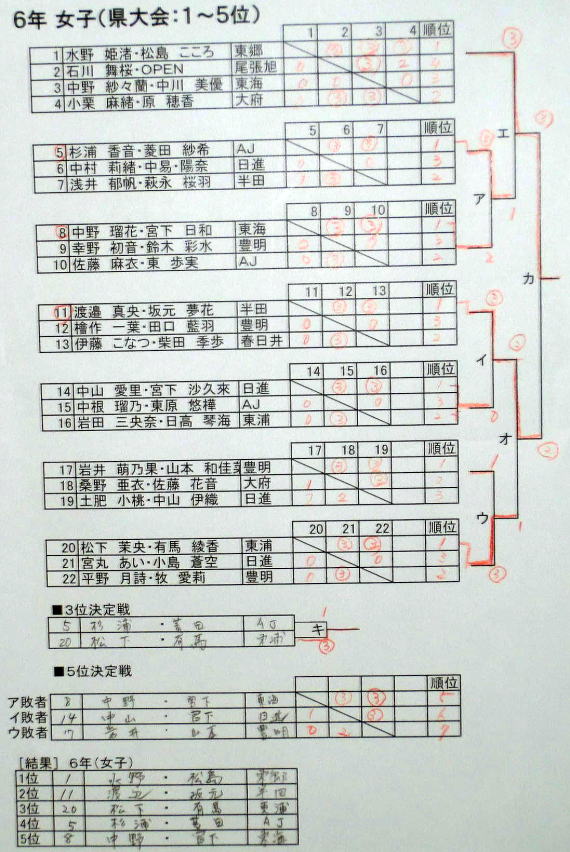 6年 女子(県大会:1～5位)
1 2 3 4 順位
1 水野 姫渚・松島 こころ 東郷 1
2 石川 舞桜・OPEN 尾張旭 0 ③ 2 4
3 中野 紗々蘭・中川 美優 東海 0 3
4 小栗 麻緒・原 穂香 大府 2 ③ ③ 2
5 6 7 順位
5 杉浦 香音・菱田 紗希 AJ ③ ③ 1
6 中村 莉緒・中易・陽奈 日進 0 0 3
7 浅井 郁帆・萩永 桜羽 半田 1 ③ 2
8 9 10 順位
8 中野 瑠花・宮下 日和 東海 ③ ③ 1
9 幸野 初音・鈴木 彩水 豊明 3
10 佐藤 麻衣・東 歩実 AJ 0 ③ 2
11 12 13 順位
11 渡邉 真央・坂元 夢花 半田 ③ ③ 1
12 檜作 一葉・田口 藍羽 豊明 0 0 3
13 伊藤 こなつ・柴田 季歩 春日井 0 ③ 2
14 15 16 順位
14 中山 愛里・宮下 沙久來 日進 ③ ③ 1
15 中根 瑠乃・東原 悠樺 AJ 0 0 3
16 岩田 三央奈・日高 琴海 東浦 0 ③ 2
17 18 19 順位
17 岩井 萌乃果・山本 和佳菜 豊明 ③ 1
18 桑野 亜衣・佐藤 花音 大府 1 ③ 2
19 土肥 小桃・中山 伊織 日進 2 3
20 21 22 順位
20 松下 茉央・有馬 綾香 東浦 ③ ③ 1
21 宮丸 あい・小島 蒼空 日進 0 0 3
22 平野 月詩・牧 愛莉 豊明 0 ③ 2
ア
イ
ウ
エ
オ
カ
■3位決定戦
5 杉浦・菱田 AJ 1
20 松下・有馬 東浦 ③
キ
■5位決定戦
順位
ア敗者 8 中野・宮下 東海 ③ ③ 5
イ敗者 14 中山・宮下 日進 1 ③ 6
ウ敗者 17 岩井・山本 豊明 0 2 7
[結果] 6年(女子)
1位 1 水野・松島 東郷
2位 11 渡辺・坂元 半田
3位 20 松下・有馬 東浦
4位 5 杉浦・菱田 AJ
5位 8 中野・宮下 東海